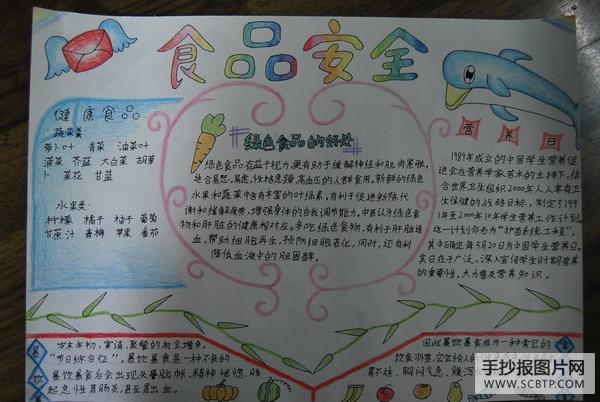 食品安全
健康食品
蔬菜类:
萝卜叶 青菜 油菜叶
菠菜 芥蓝 大白菜 胡萝
卜 菜花 甘蓝
水果类:
柠檬 橘子 柚子 葡萄
甘蔗汁 青梅 苹果 番茄
绿色食品的好处
绿色食品有益于视力,更有助于缓解神经和肌肉紧张,
适合易怒、易虑,性格急躁,高血压的人群食用。新鲜的绿色
水果和蔬菜中含有丰富的叶绿素,有利于促进新陈代
谢和缓解疲劳,增强身体的自我调节能力。中医认为绿色食
物和肝脏的健康相对应。多吃绿色食物,有利于肝脏造
血,帮助细胞再生,预防细胞老化,同时,还有利
降低血液中的胆固醇。
营养日
1989年成立的中国学生营养促
进会在营养学家苦木的主持下,结
合世界卫生组织2000年人人享有卫
生保健的战略目标,制定了199
1年至2000年10年学生营养工作计划
这一计划命名为“护苗系统工程”。
其中确定每5月20日为中国学生营养日。
其目在于广泛、深入宣传学生时期营养
的重要性,大力普及营养知识。
岁末年初,宴请、聚餐的机会增多,
“节日综合征”。暴饮暴食是一种不良的
暴饮暴食后会出现头晕脑胀、精神恍惚、肠
起急性胃肠炎,甚至胃出血。
因此暴饮暴食成为一种常见的
饮食习惯,它会给人的
胃不适、胸闷气急、腹泻
手抄报图片网
WWW.SCBTP.COM